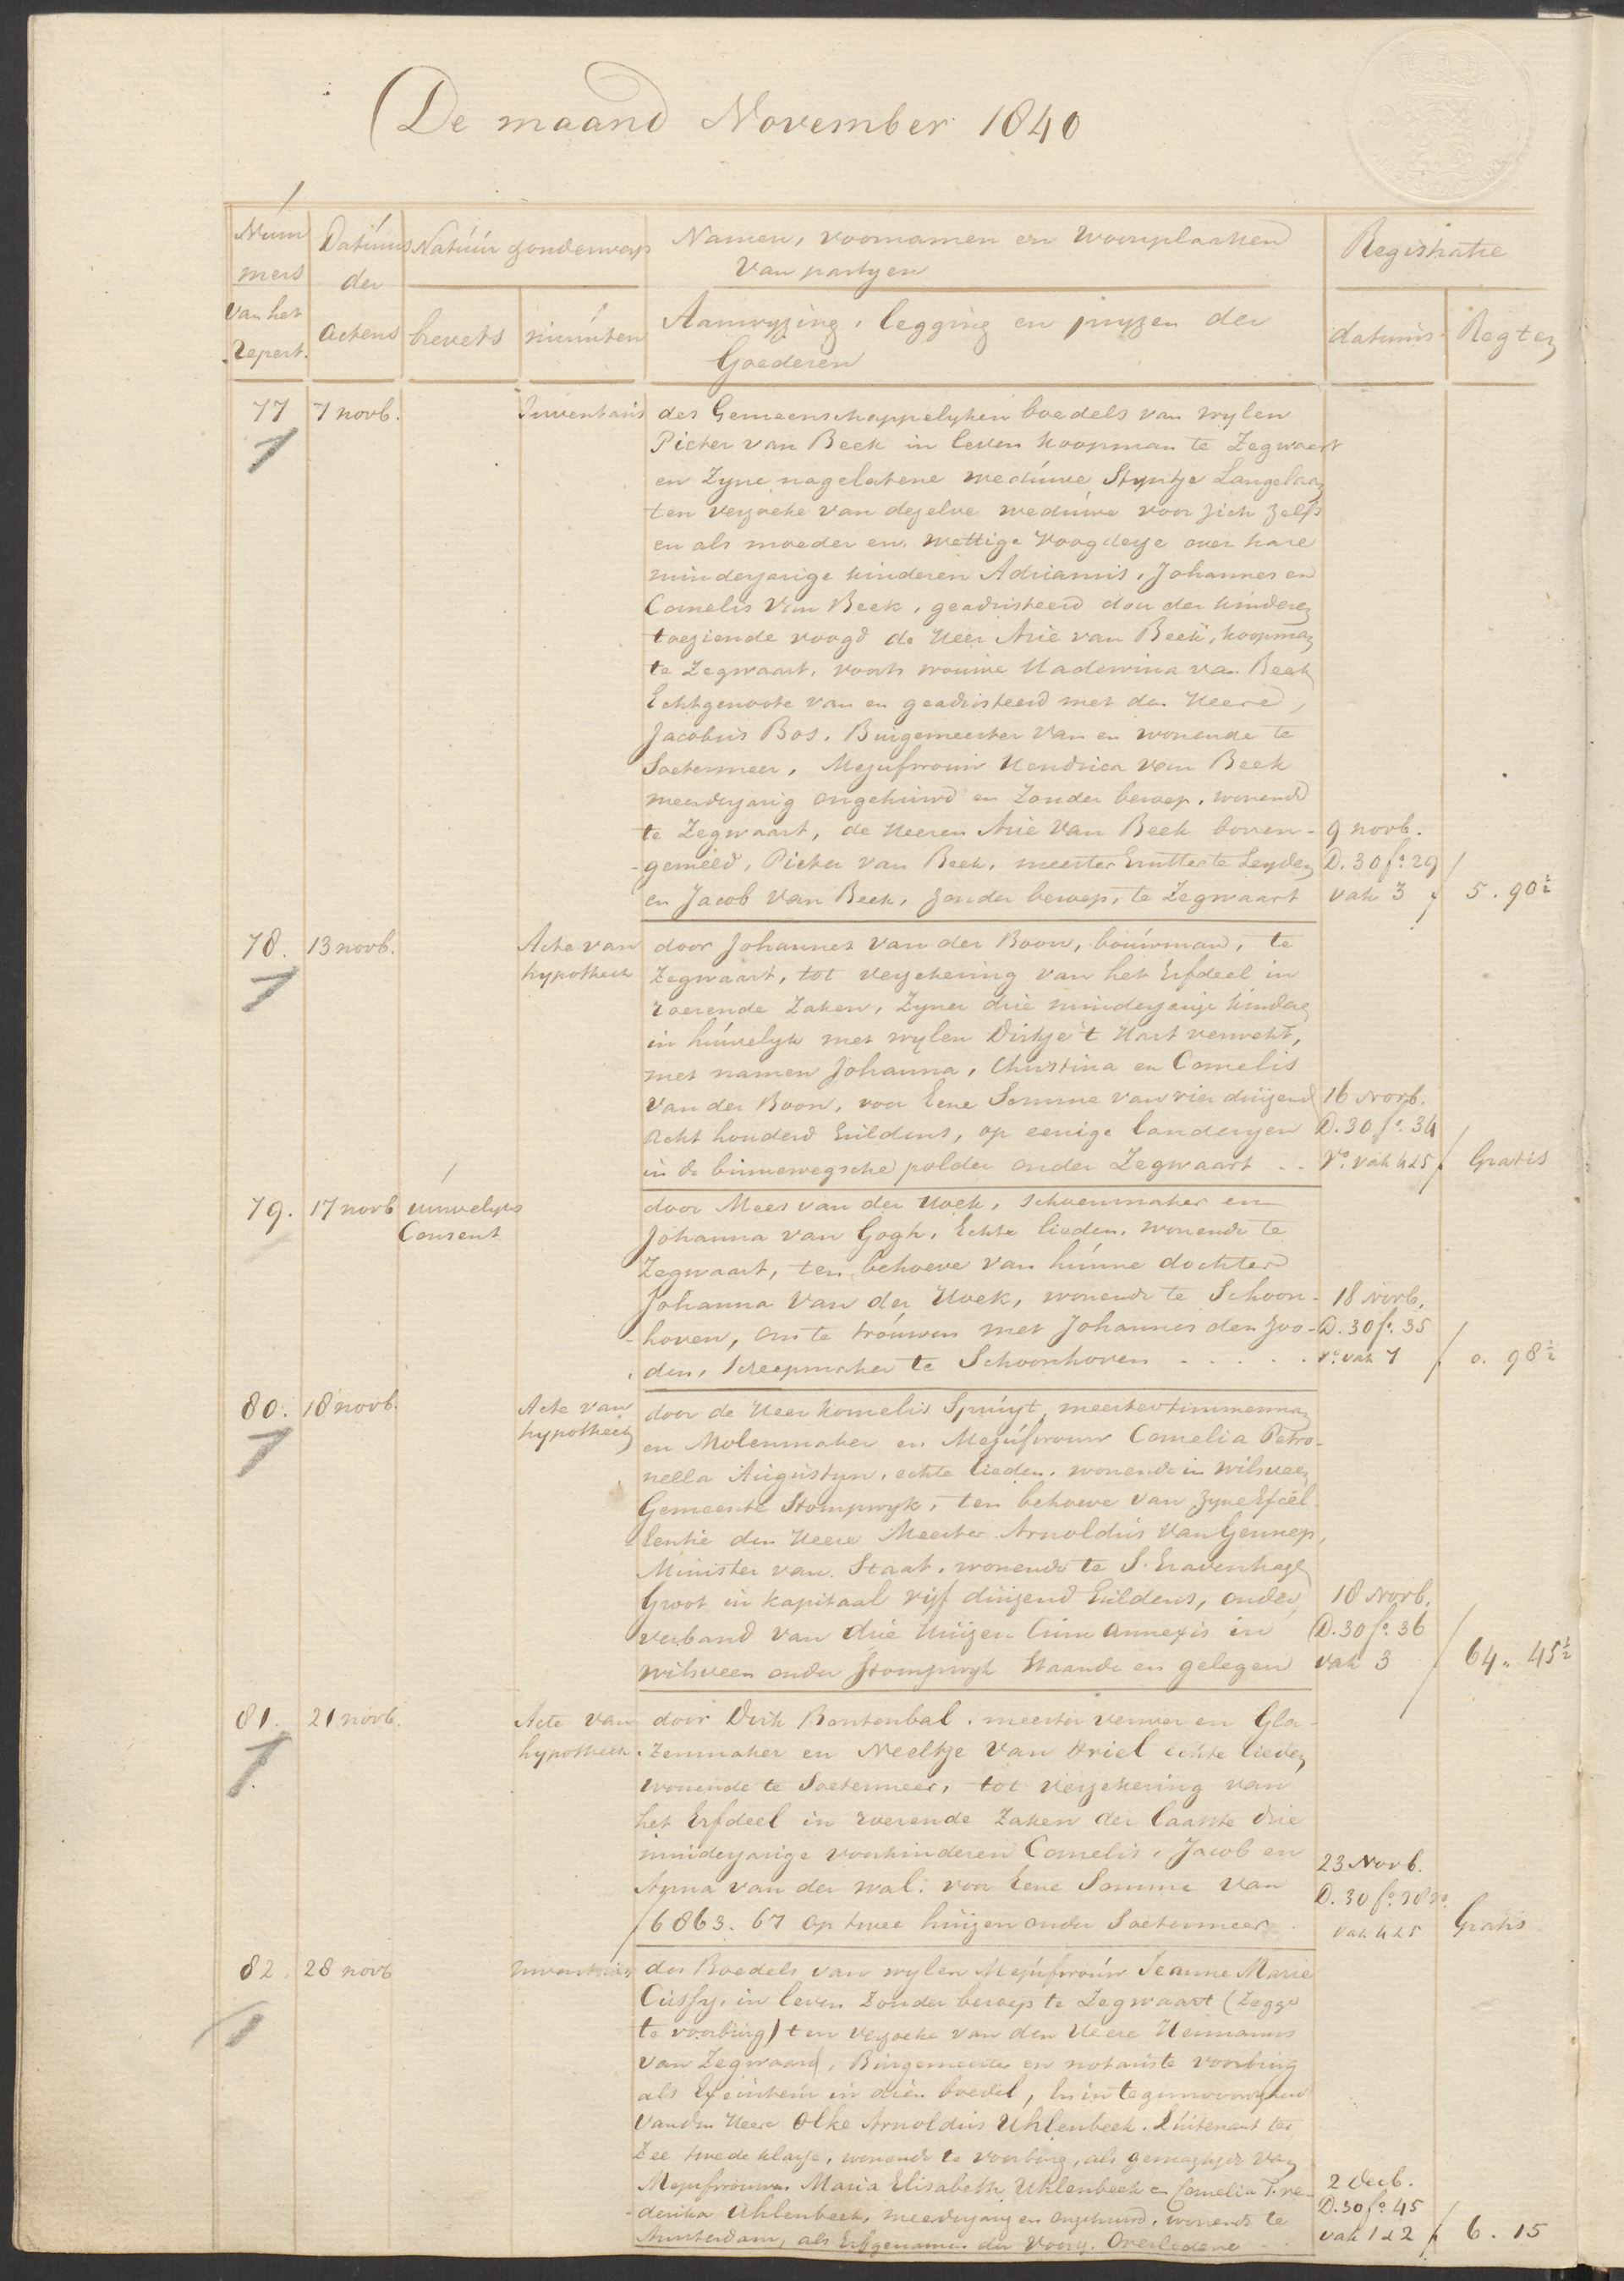 De maand November 1840
Num
mers
van het
Repert.
Datums
der
actens
Natuur & onderwerp
brevets
minuten
Namen, voornamen en Woonplaatsen
Van partyen
Aanwyzing, legging en pryzen der
Goederen
Registratie
datums
Regten
77 7 novb. Inventaris des Gemeenschappelyken boedels van wylen
Pieter van Beek in leven koopman te Zegwaart
en Zyne nagelatene weduwe Styntje Langelaan
ten verzoeke van dezelve weduwe voor zich zelfs
en als moeder en wettige Voogdesse over hare
minderjarige kinderen Adrianus, Johannes en
Cornelis Van Beek, geadsisteerd door der kinderen
toeziende voogd de Heer Arie van Beek, koopman
te Zegwaart, voorts vrouwe Hadewina van Beek
Echtgenoote van en geadsisteerd met den Heere
Jacobus Bos, Burgemeester Van en wonende te
Soetermeer, Mejufvrouw Hendrica van Beek
meerderjarig ongehuwd en Zonder beroep, wonende
te Zegwaart, de Heeren Arie Van Beek boven- 9 novb.
-gemeld, Pieter van Beek, meester Grutter te Leyden D. 30 fo. 29
en Jacob Van Beek, zonder beroep, te Zegwaart vak 3 f 5. 90½
78. 13 novb. Acte van door Johannes van der Boon, bouwman, te
hypotheek Zegwaart, tot verzekering van het Erfdeel in
roerende Zaken, Zyner drie minderjarige kinderen
in huwelyk met wylen Dirkje 't Hart verwekt,
met namen Johanna, Christina en Cornelis
Van der Boon, voor Eene Somme van vier duizend 16 Novb.
Acht honderd Guldens, op eenige landeryen D. 30 fo. 34
in de binnewegsche polder onder Zegwaart .. Vo. vak 4&5 f Gratis
79. 17 novb Huwelyks door Mees van der Hoek, schoenmaker en
Consent Johanna van Gogh, Echte lieden, wonende te
Zegwaart, ten behoeve van hunne dochter
Johanna Van der Hoek, wonende te Schoon- 18 Novb.
-hoven, om te trouwen met Johannes den Joo- D. 30 fo. 35
den, Scheepmaker te Schoonhoven . . . . . ro. vak 7 f 0. 98½
80. 18 novb. Acte van door de Heer Kornelis Spruyt, meestertimmerman
hypotheek en Molenmaker en Mejufvrouw Cornelia Petro-
nella Augustyn, echte lieden, wonende in Wilsveen
Gemeente Stompwyk, ten behoeve van zyne Excel-
lentie den Heere Meester Arnoldus Van Gennep,
Minister van Staat, wonende te S. Gravenhage
Groot in kapitaal vijf duizend Guldens, onder 18 Novb.
verband van drie Huizen Cum annexis in D. 30 fo. 36
wilsveen onder Stompwyk Staande en gelegen vak 3 f 64. 45½
81. 21 novb. Acte van door Dirk Bontenbal, meester verwer en Gla-
hypotheek. zenmaker en Neeltje Van Driel echte lieden
wonende te Soetermeer, tot verzekering van
het Erfdeel in roerende Zaken der laaste drie
minderjarige voorkinderen Cornelis, Jacob en
Anna van der Wal, voor Eene Somme van 23 Novb.
f 6863. 67 op twee huizen onder Soetermeer D. 30 fo. 38 vo.
vak 4&5 Gratis
82. 28 novb Inventaris des Boedels van wylen Mejufvrouw Jeanne Marie
Cussy, in leven Zonder beroep te Zegwaart (Zegge
te voorburg) ten verzoeke van den Heere Hermanus
van Zegwaard, Burgemeester en notaris te voorburg
als Executeur in dien boedel, En in tegenwoordigheid
Van den Heere Olke Arnoldus Uhlenbeek. Luitenant ter
Zee tweede klasse, wonende te voorburg, als gemagtigde van
Mejufvrouwen Maria Elisabeth Uhlenbeek en Cornelia Fre- 2 Decb.
-derika Uhlenbeek, meerderjarig en ongehuwd, wonende te D. 30 fo. 45
Amsterdam, als Erfgenamen der Voorg. Overledene vak 1&2 f 6. 15